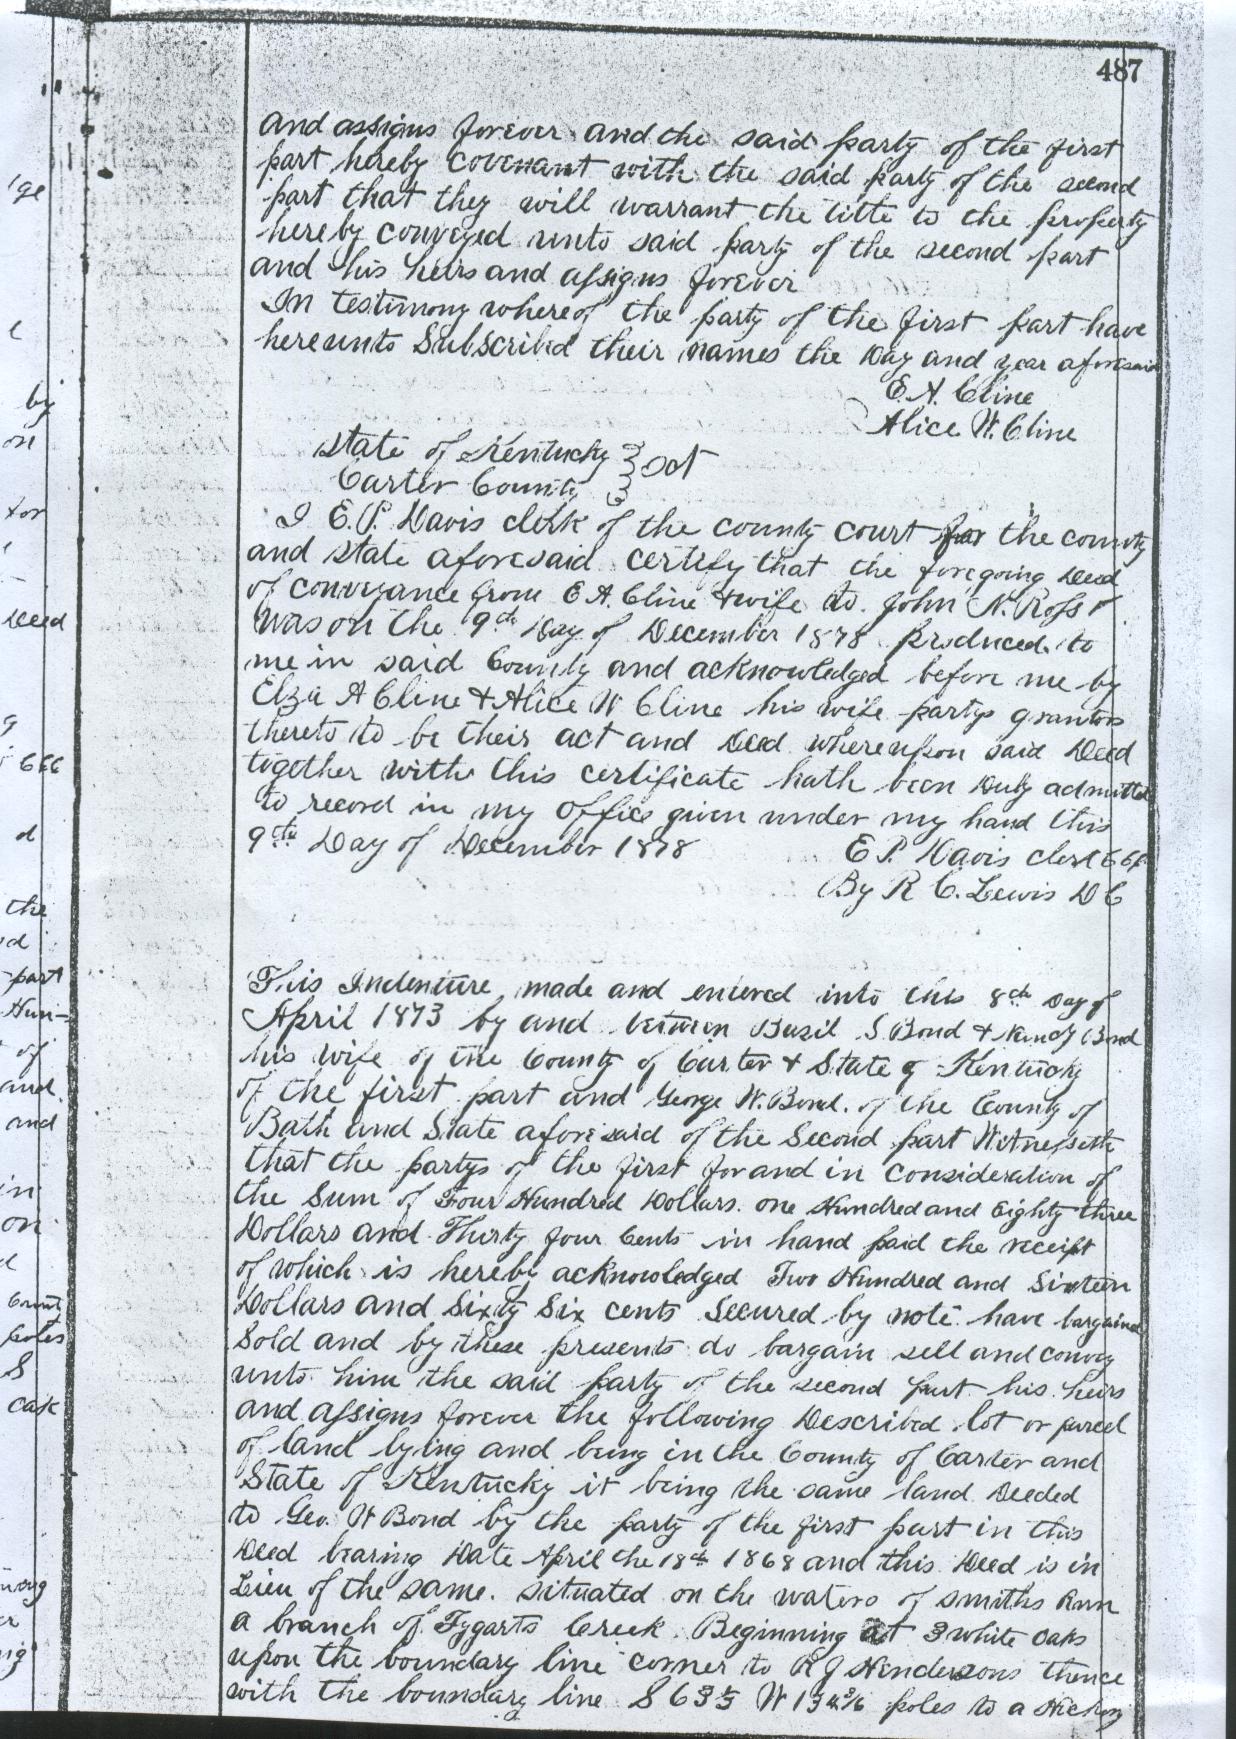 487
and assigns forever and the said party of the first
part hereby covenant with the said party of the second
part that they will warrant the title to the property
hereby conveyed unto said party of the second part
and his heirs and assigns forever
In testimony whereof the party of the first part have
hereunto Subscribed their names the Day and year aforesaid
E. A. Cline
Alice W. Cline
State of Kentucky
Carter County } Sct
I E. P. Davis clerk of the county court for the county
and state aforesaid certify that the foregoing Deed
of conveyance from E A. Cline & wife to John N. Ross
was on the 9th Day of December 1878 produced to
me in said County and acknowledged before me by
Elza A Cline & Alice W Cline his wife partys grantors
thereto to be their act and Deed whereupon said Deed
together with this certificate hath been Duly admitted
to record in my office given under my hand this
9th Day of December 1878
E P. Davis clerk
By R C. Lewis D C
This Indenture made and entered into this 8th Day of
April 1873 by and between Bazil S. Bond & Nancy Bond
his wife of the County of Carter & State of Kentucky
of the first part and George W. Bond. of the County of
Bath and State aforesaid of the Second part Witnesseth
that the partys of the first for and in consideration of
the Sum of Four Hundred Dollars. one Hundred and Eighty three
Dollars and Thirty four Cents in hand paid the receipt
of which is hereby acknowledged Two Hundred and Sixteen
Dollars and Sixty Six cents Secured by note have bargained
Sold and by these presents do bargain sell and convey
unto him the said party of the second part his heirs
and assigns forever the following Described lot or parcel
of land lying and being in the County of Carter and
State of Kentucky it being the same land Deeded
to Geo. W Bond by the party of the first part in this
Deed bearing Date April the 18th 1868 and this Deed is in
Lieu of the same. situated on the waters of smiths Run
a branch of Tygarts Creek. Beginning at 3 white oaks
upon the boundary line corner to R J Hendersons thence
with the boundary line S 63 W poles to a Hickory